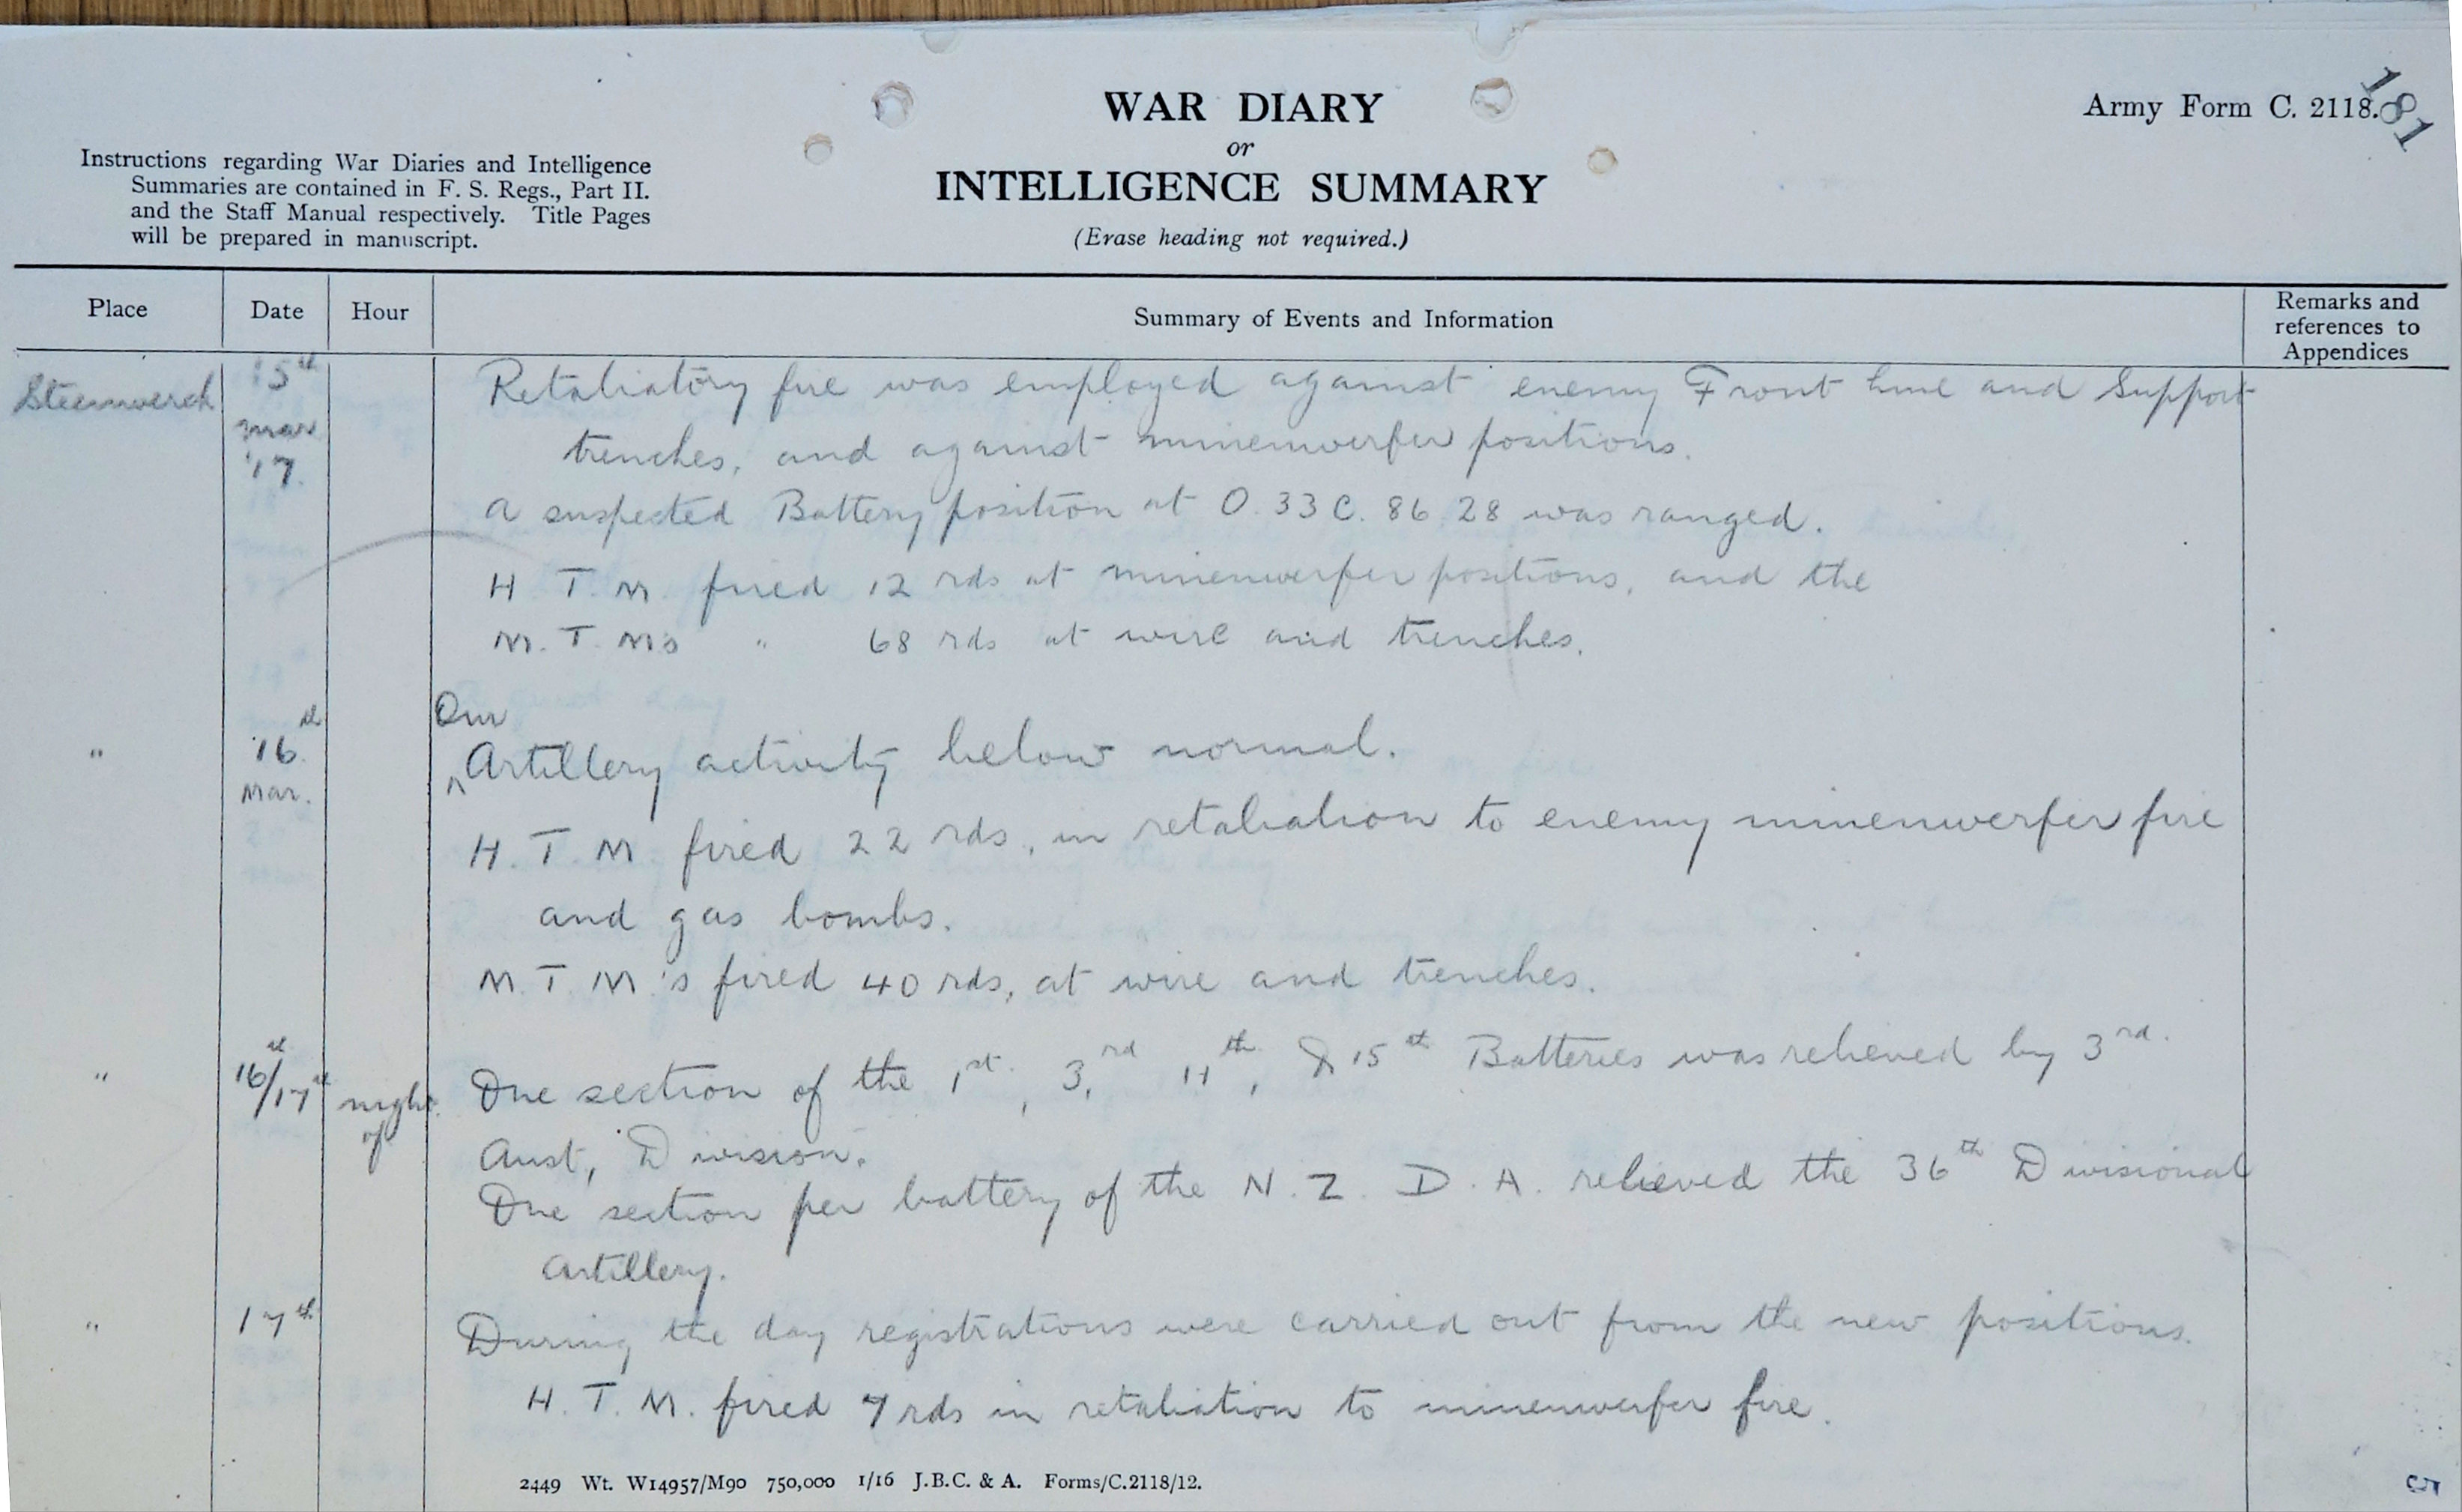 WAR DIARY
or
INTELLIGENCE SUMMARY
(Erase heading not required.)
Army Form C. 2118.
181
Instructions regarding War Diaries and Intelligence
Summaries are contained in F. S. Regs., Part II.
and the Staff Manual respectively. Title Pages
will be prepared in manuscript.
Place Date Hour Summary of Events and Information Remarks and references to Appendices
Steenwerck 15th Mar '17. Retaliatory fire was employed against enemy Front line and Support
trenches, and against minenwerfer positions.
A suspected Battery position at O.33 C. 86.28 was ranged.
H. T. M. fired 12 rds at minenwerfer positions, and the
M. T. Ms " 68 rds at wire and trenches.
" 16th Mar. Our Artillery activity below normal.
H. T. M fired 22 rds, in retaliation to enemy minenwerfer fire
and gas bombs.
M. T. M.'s fired 40 rds, at wire and trenches.
" 16th/17th night of One section of the 1st, 3rd, 11th, & 15th Batteries was relieved by 3rd.
Aust, Division.
One section per battery of the N. Z. D. A. relieved the 36th Divisional
Artillery.
" 17th During the day registrations were carried out from the new positions.
H. T. M. fired 7 rds in retaliation to minenwerfer fire.
2449 Wt. W14957/M90 750,000 1/16 J.B.C. & A. Forms/C.2118/12.